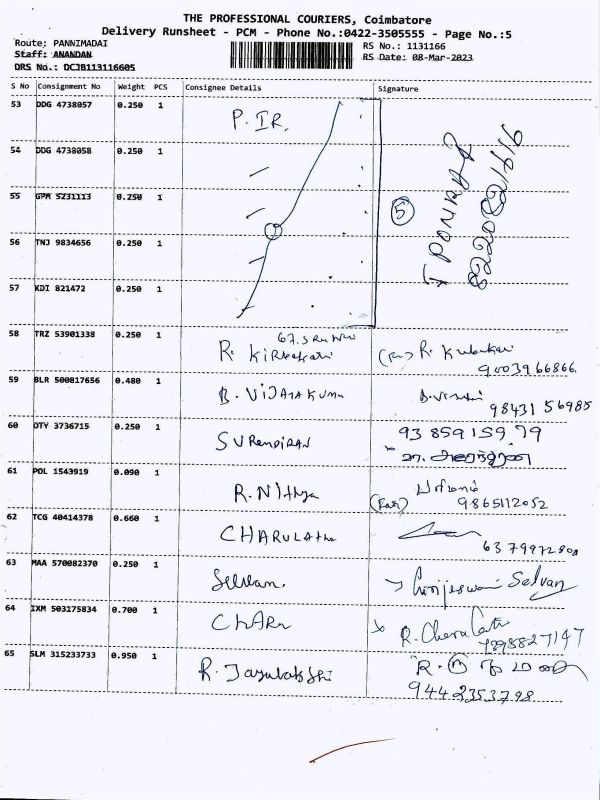 THE PROFESSIONAL COURIERS, Coimbatore
Delivery Runsheet - PCM - Phone No.:0422-3505555 - Page No.:5
Route; PANNIMADAI
Staff: ANANDAN
DRS No.: DCJB113116605
RS No.: 1131166
RS Date: 08-Mar-2023
S No Consignment No Weight PCS Consignee Details Signature
53 DDG 4738057 0.250 1 P. IR.
54 DDG 4738058 0.250 1
55 GPM 5231113 0.250 1
5
56 TNJ 9834656 0.250 1
57 KDI 821472 0.250 1
8220821616
58 TRZ 53901338 0.250 1 R. R.
9003966866
59 BLR 500817656 0.480 1 B. VIJAYAKUMA
98431 56985
60 OTY 3736715 0.250 1 SURENDIRAN 93 859 159 79
61 POL 1543919 0.090 1 R. Nithya
9865112052
62 TCG 40414378 0.660 1 CHARULAtha
63 MAA 570082370 0.250 1 Selvam. Selvan
64 IXM 503175834 0.700 1 CHARU
65 SLM 315233733 0.950 1 R.
9442353798